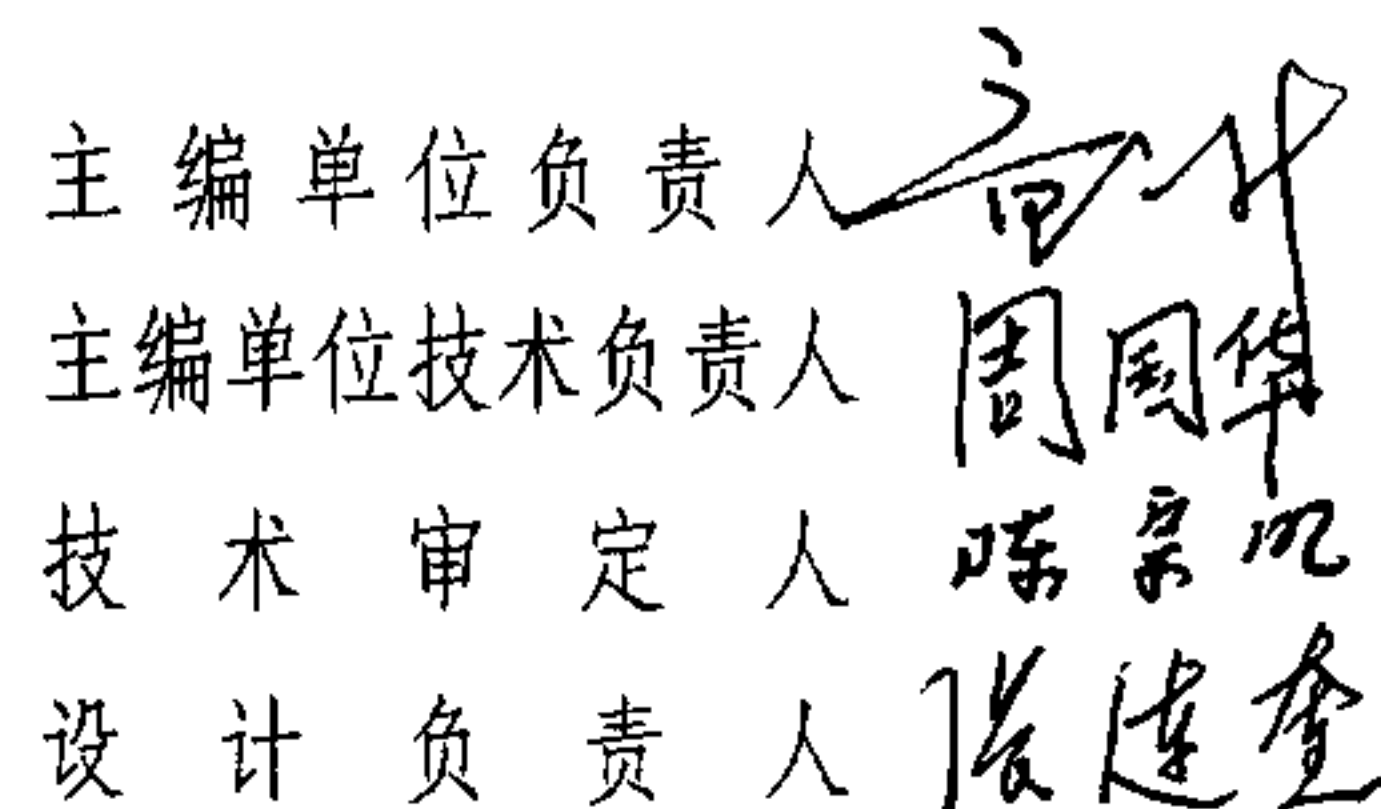 主编单位负责人
主编单位技术负责人 周国华
技术审定人 陈宗
设计负责人 张连奎